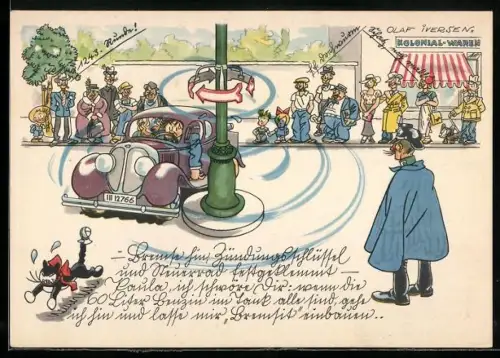 OLAF IVERSEN.
KOLONIAL-WAREN
III 12766
— Bremse hin, Zündungsschlüssel
und Steuerrad festgeklemmt —
Paula, ich schwöre Dir: wenn die
60 Liter Benzin im Tank alle sind, gehe
ich hin und lasse mir „Bremsit" einbauen..